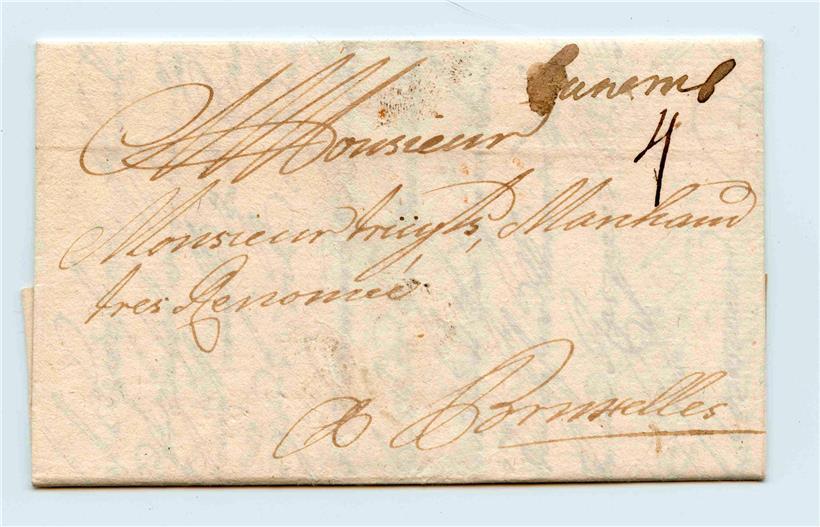 4
Monsieur
Monsieur truyts, Marchand
tres Renomée
a Bruxelles